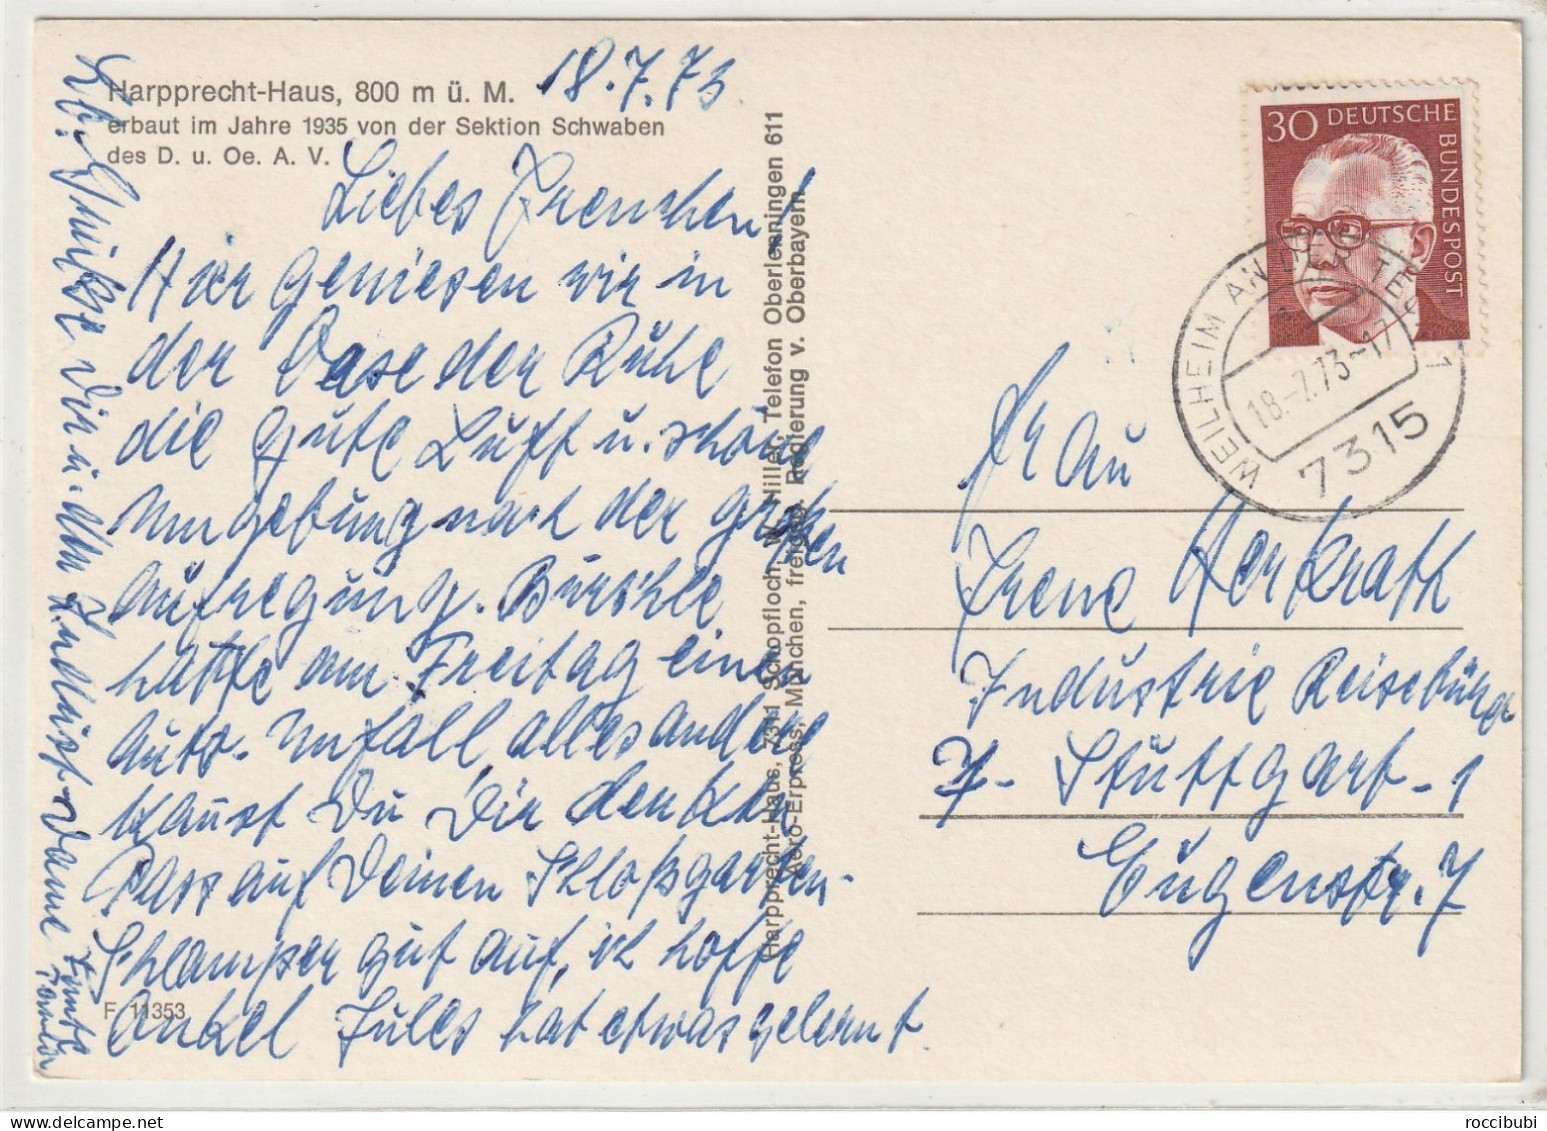 Harpprecht-Haus, 800 m ü. M.
erbaut im Jahre 1935 von der Sektion Schwaben
des D. u. Oe. A. V.
18.7.73
Liebes Irenchen!
Hier geniesen wir in
der Oase der Ruhe
die gute Luft u. schöne
Umgebung nach der großen
Aufregung.
hatte am Freitag einen
Auto-Unfall alles andere
kanst Du Dir denken
Pass auf Deinen Schloßgarten-
Schlamper gut auf, ich hoffe
Onkel Jules hat etwas gelernt.
Lb. Grüße Dir u. den Deine Tante
F 11353
Harpprecht-Haus, 7311 Schopfloch, W. Hiller, Telefon Oberlenningen 611
Aero-Express, München, freigeg. Regierung v. Oberbayern
30 DEUTSCHE BUNDESPOST
WEILHEIM AN DER TECK 1
18.-7.73-17
7315
Frau
Irene Herkrath
Industrie Reisebüro
7- Stuttgart-1
Eugenstr. 7
roccibubi